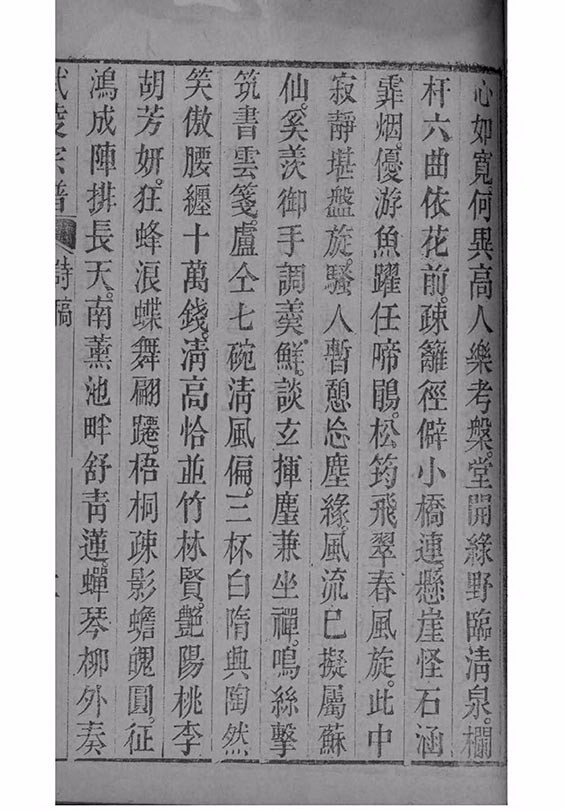 心如寬何異高人樂考槃堂開綠野臨清泉欄
杆六曲依花前疎籬徑僻小橋連懸崖怪石涵
霏烟優游魚躍任啼鵑松筠飛翠春風旋此中
寂靜堪盤旋騷人暫憩忘塵緣風流已擬屬蘇
仙奚羨御手調羹鮮談玄揮麈兼坐禪鳴絲擊
筑書雲箋盧仝七碗清風偏三杯白墮興陶然
笑傲腰纏十萬錢清高恰並竹林賢艷陽桃李
胡芳妍狂蜂浪蝶舞翩躚梧桐疎影蟾魄圓征
鴻成陣排長天南薰池畔舒青蓮蟬琴柳外奏
宗譜 詩稿